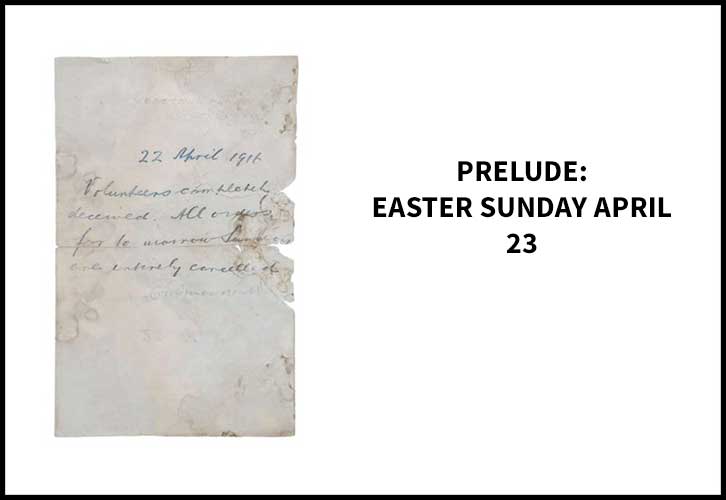 22 April 191
Volunteers completely
deceived. All orders
for to morrow Sunday
are entirely cancelled
PRELUDE:
EASTER SUNDAY APRIL
23